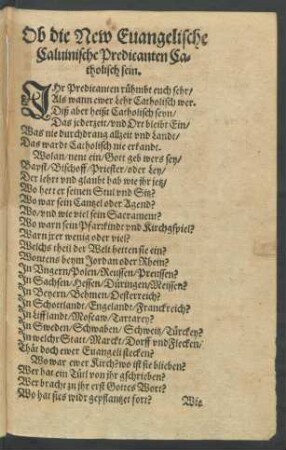 Ob die New Euangelische
Caluinische Predicanten Ca-
tholisch sein.
IHr Predicanten rühmbt euch sehr/
Als wann ewer Lehr Catholisch wer.
Diß aber heißt Catholisch seyn/
Das jederzeit/ vnd Ort bleibt Ein/
Was nie durchdrang allzeit vnd Landt/
Das wardt Catholisch nie erkandt.
Wolan/ nent ein/ Gott geb wers sey/
Bapst/ Bischoff/ Priester/ oder Ley/
Der lehrt vnd glaubt hab wie ihr jetz/
Wo hett er seinen Stul vnd Sitz?
Wo war sein Cantzel oder Agend?
Wo/ vnd wie viel sein Sacrament?
Wo warn sein Pfarrkinde vnd Kirchgspiel?
Warn jrer wenig oder viel?
Welchs theil der Welt hetten sie ein?
Wontens beym Jordan oder Rhein?
In Vngern/ Polen/ Reussen/ Preussen?
In Sachsen/ Hessen/ Düringen/ Meyssen?
In Beyern/ Behmen/ Oesterreich?
In Schottlandt/ Engelandt/ Franckreich?
In Liffland/ Moscaw/ Tartarey?
In Sweden/ Schwaben/ Schweitz/ Türckey?
In welchr Statt/ Marckt/ Dorff vnd Flecken/
Thät doch ewer Euangeli stecken?
Wo war ewer Kirch? wo ist sie blieben?
Wer hat ein Tütl von jhr gschrieben?
Wer bracht zu jhr erst Gottes Wort?
Wo hat sies widr gepflantzet fort?
Wie